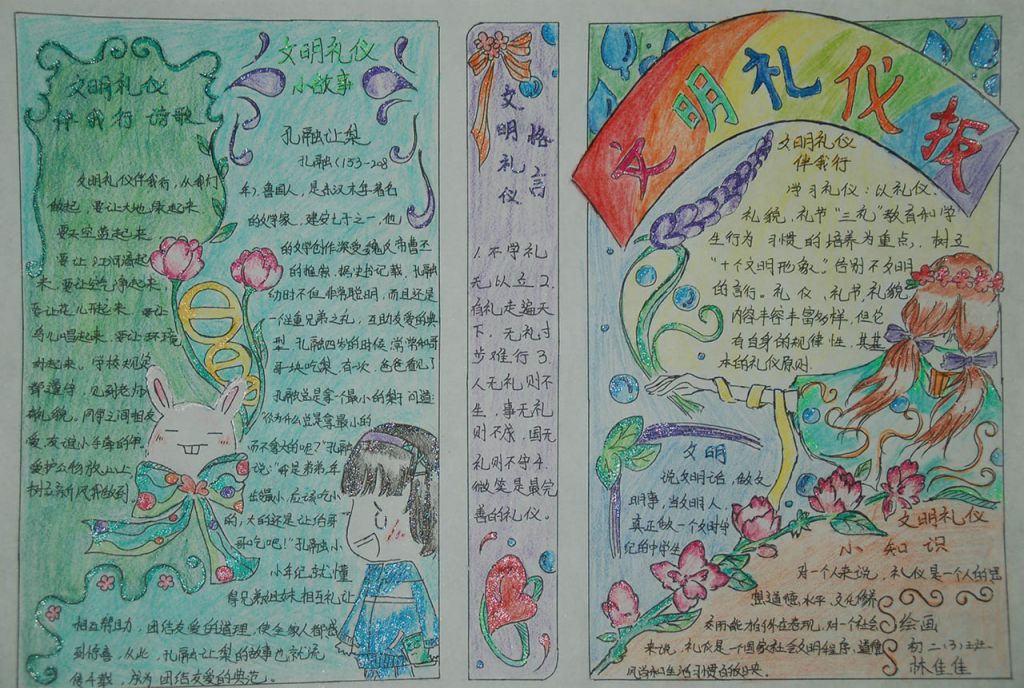 文明礼仪
伴我行 诗歌
文明礼仪伴我行,从我们
做起,要让大地绿起来
要天空蓝起来
要让江河清起来
来,要让空气净起来,
要让花儿开起来,要让
鸟儿唱起来,要让环境
好起来。学校规定
都遵守,见到老师
有礼貌。同学之间相友
爱,友谊小手牵
爱护公物放心上
文明礼仪
小故事
孔融让梨
孔融(153-208
年),鲁国人,是东汉末年著名
的文学家,建安七子之一,他
的文学创作深受魏文帝曹丕
的推崇。据史书记载,孔融
幼时不但非常聪明,而且还是
一个注重兄弟之礼,互助友爱的典
型。孔融四岁的时候,常常和哥
哥一块吃梨。有次,爸爸看见了
孔融总是拿个最小的梨子,问道:
“你为什么总是拿最小的
而不拿大的呢?”孔融
说:“我是弟弟,年
龄最小,应该吃小
的,大的还是让给哥
哥吃吧!”孔融小
小年纪就懂
得兄弟姐妹相互礼让
相互帮助,团结友爱的道理,使全家人都感
到惊喜。从此,孔融让梨的故事也就流
传千载,成为团结友爱的典范。
文明礼仪
格言
1.不学礼
无以立2.
有礼走遍天
下,无礼寸
步难行3.
人无礼则不
生,事无礼
则不成,国无
礼则不宁4.
微笑是最完
善的礼仪。
文明礼仪报
文明礼仪
伴我行
学习礼仪:以礼仪、
礼貌、礼节“三礼”教育和学
生行为 习惯的培养为重点,树立
“十个文明形象”,告别不文明
的言行。礼仪、礼节、礼貌
内容丰容丰富多样,但它
有自身的规律性,其基
本的礼仪原则
文明
说文明话,做文
明事,当文明人,
真正做一个文明
纪的中学生
文明礼仪
小知识
对一个人来说,礼仪是一个人的思
想道德水平、文化修养
交际能力的外在表现,对一个社会
来说,礼仪是一个国家社会文明程序、道德
风尚和生活习惯的反映。
绘画
初二(3)班
林佳佳